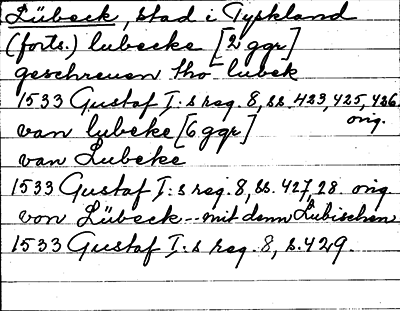 Lübeck, stad i Tyskland
(forts.) lubecke [2 ggr]
geschreuen tho lubek
1533 Gustaf I:s reg. 8, ss. 423, 425, 426.
orig.
van lubeke [6 ggr]
van Lubeke
1533 Gustaf I:s reg. 8, ss. 427, 28. orig
von Lübeck -- mit denn Lübischen
1533 Gustaf I:s reg. 8, s. 429.